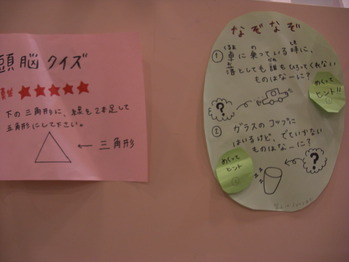 頭脳クイズ
★★★★★
下の三角形に、線を2本足して
三角形にして下さい。
← 三角形
なぞなぞ
① 車に乗っている時に、
落としても誰もひろってくれない
ものはなーに?
めくって
ヒント!!
?
② グラスのコップに
はいるけど、でていかない
ものはなーに?
めくって
ヒント
?